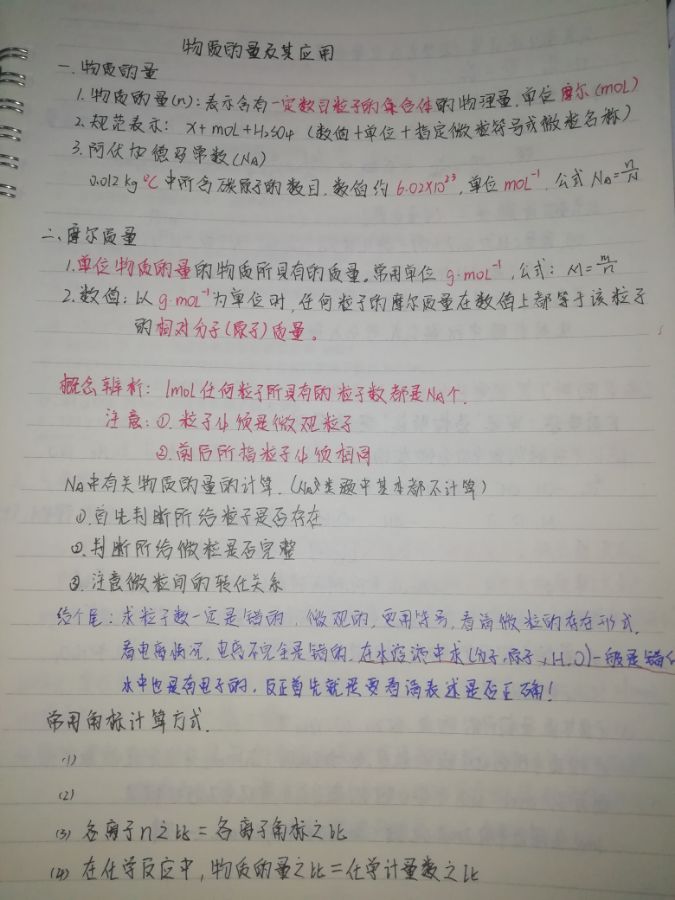 物质的量及其应用
一、物质的量
1.物质的量(n):表示含有一定数目粒子的集合体的物理量,单位摩尔(mol)
2.规范表示: x+mol+H₂SO₄ (数值+单位+指定微粒符号或微粒名称)
3.阿伏加德罗常数(NA)
0.012kg ¹²C中所含碳原子的数目,数值约6.02×10²³,单位mol⁻¹,公式 NA=n/N
二、摩尔质量
1.单位物质的量的物质所具有的质量。常用单位 g·mol⁻¹,公式: M=m/n
2.数值:以g·mol⁻¹为单位时,任何粒子的摩尔质量在数值上都等于该粒子
的相对分子(原子)质量。
概念辨析: 1mol任何粒子所具有的粒子数都是NA个.
注意:①.粒子必须是微观粒子
②.前后所指粒子必须相同
NA中有关物质的量的计算.(NA类题中基本都不计算)
①.首先判断所给粒子是否存在
②.判断所给微粒是否完整
③.注意微粒间的转化关系
给个尾:求粒子数一定是错的,微观的,要用符号,看清微粒的存在形式,
看电离情况,电离不完全是错的,在水溶液中求(分子,原子,H,O)一般是错的
水中也是有电子的,反正首先就是要看清表述是否正确!
常用角标计算方式.
(1)
(2)
(3) 各离子n之比=各离子角标之比
(4) 在化学反应中,物质的量之比=化学计量数之比